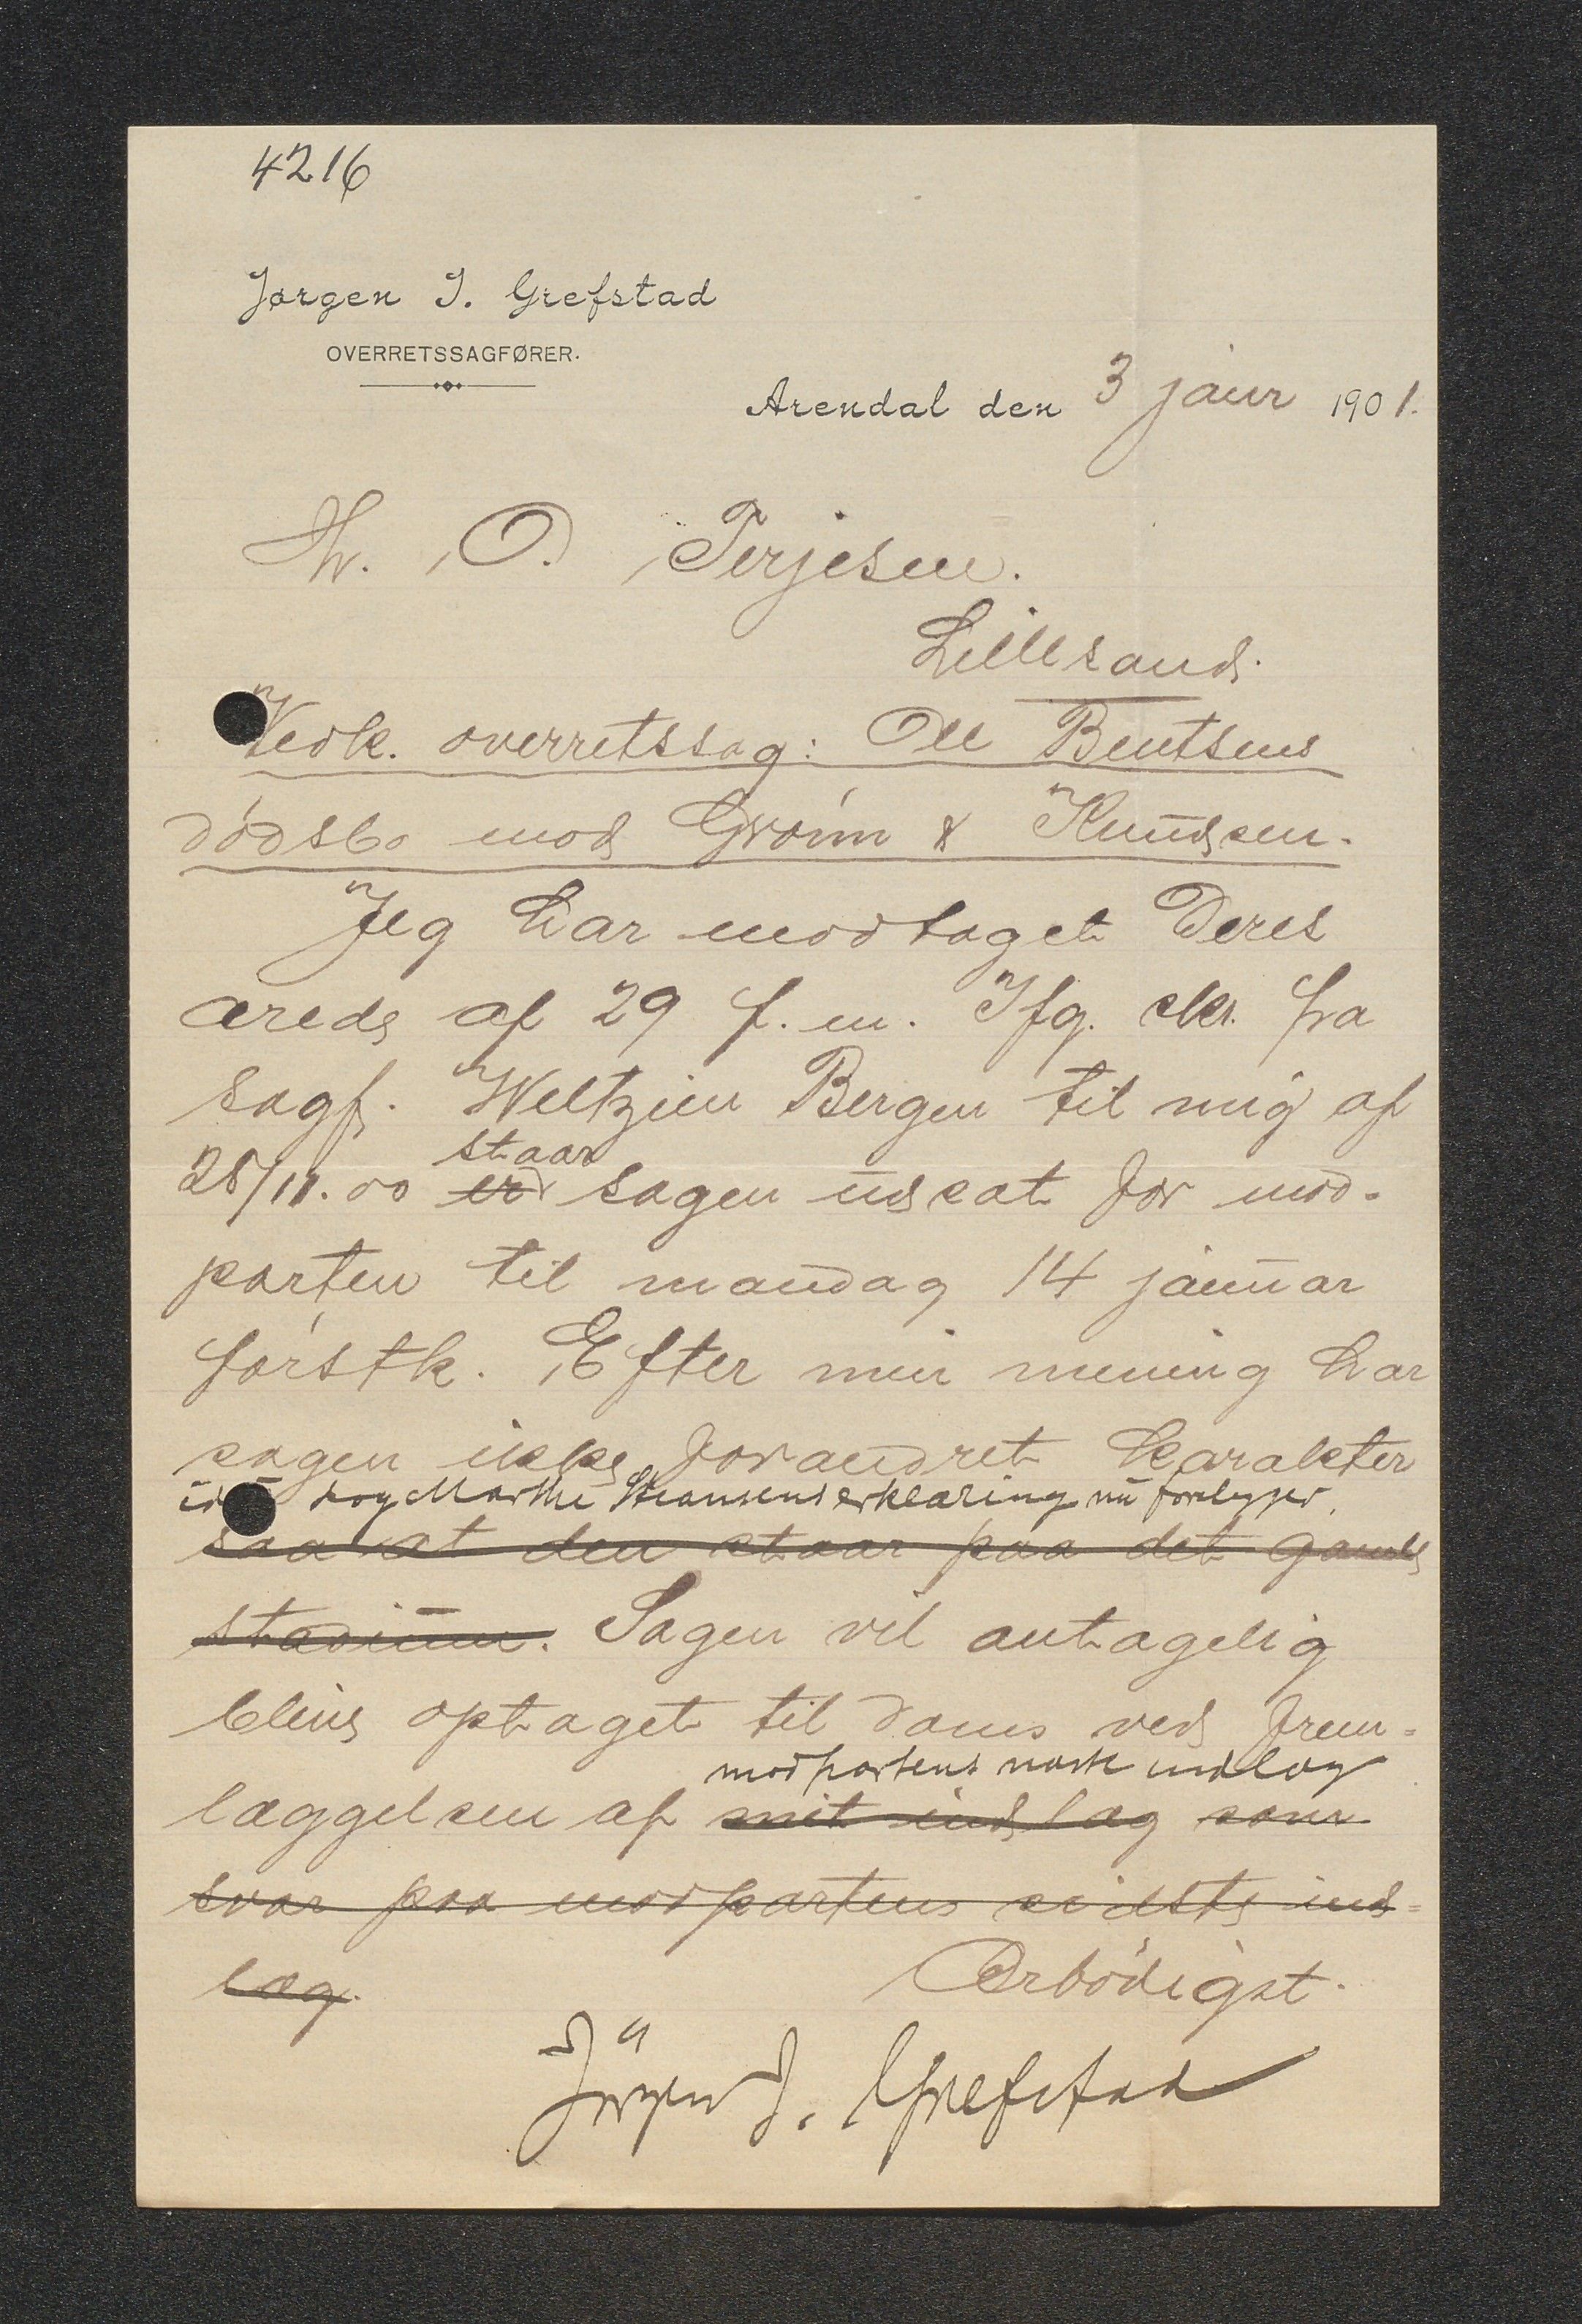 4216
Jørgen J. Grefstad
OVERRETSSAGFØRER.
Arendal den 3 janr 1901.
Hr. O. Terjesen.
Lillesand.
Vedk. overretssag: Ole Bentsens
dødsbo mod Grønn & Knudsen.
Jeg har modtaget Deres
ærede af 29 f. m. Ifg. skr. fra
sagf. Weltzien Bergen til mig af
staar
28/11.00 er sagen udsat for mod-
parten til mandag 14 januar
førstk. Efter min mening har
sagen ikke forandret karakter
dog Marthe erklæring nu foreligger.
saa at den staar paa det gamle
stadium. Sagen vil antagelig
blive optaget til doms ved frem-
modpartens næste indlæg
læggelsen af mit indlæg som
svar paa modpartens sidste ind-
læg.
Ærbødigst.
Jörgen J. Grefstad